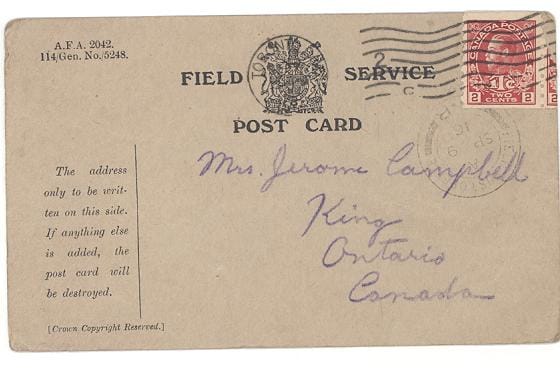 A.F.A. 2042.
114/Gen. No./5248.
FIELD SERVICE
POST CARD
The address
only to be writ-
ten on this side.
If anything else
is added, the
post card will
be destroyed.
[Crown Copyright Reserved.]
Mrs. Jerome Campbell
King
Ontario
Canada
TORON
2
C
CANADA POSTAGE
1Tc
2 TWO CENTS 2
SP 9